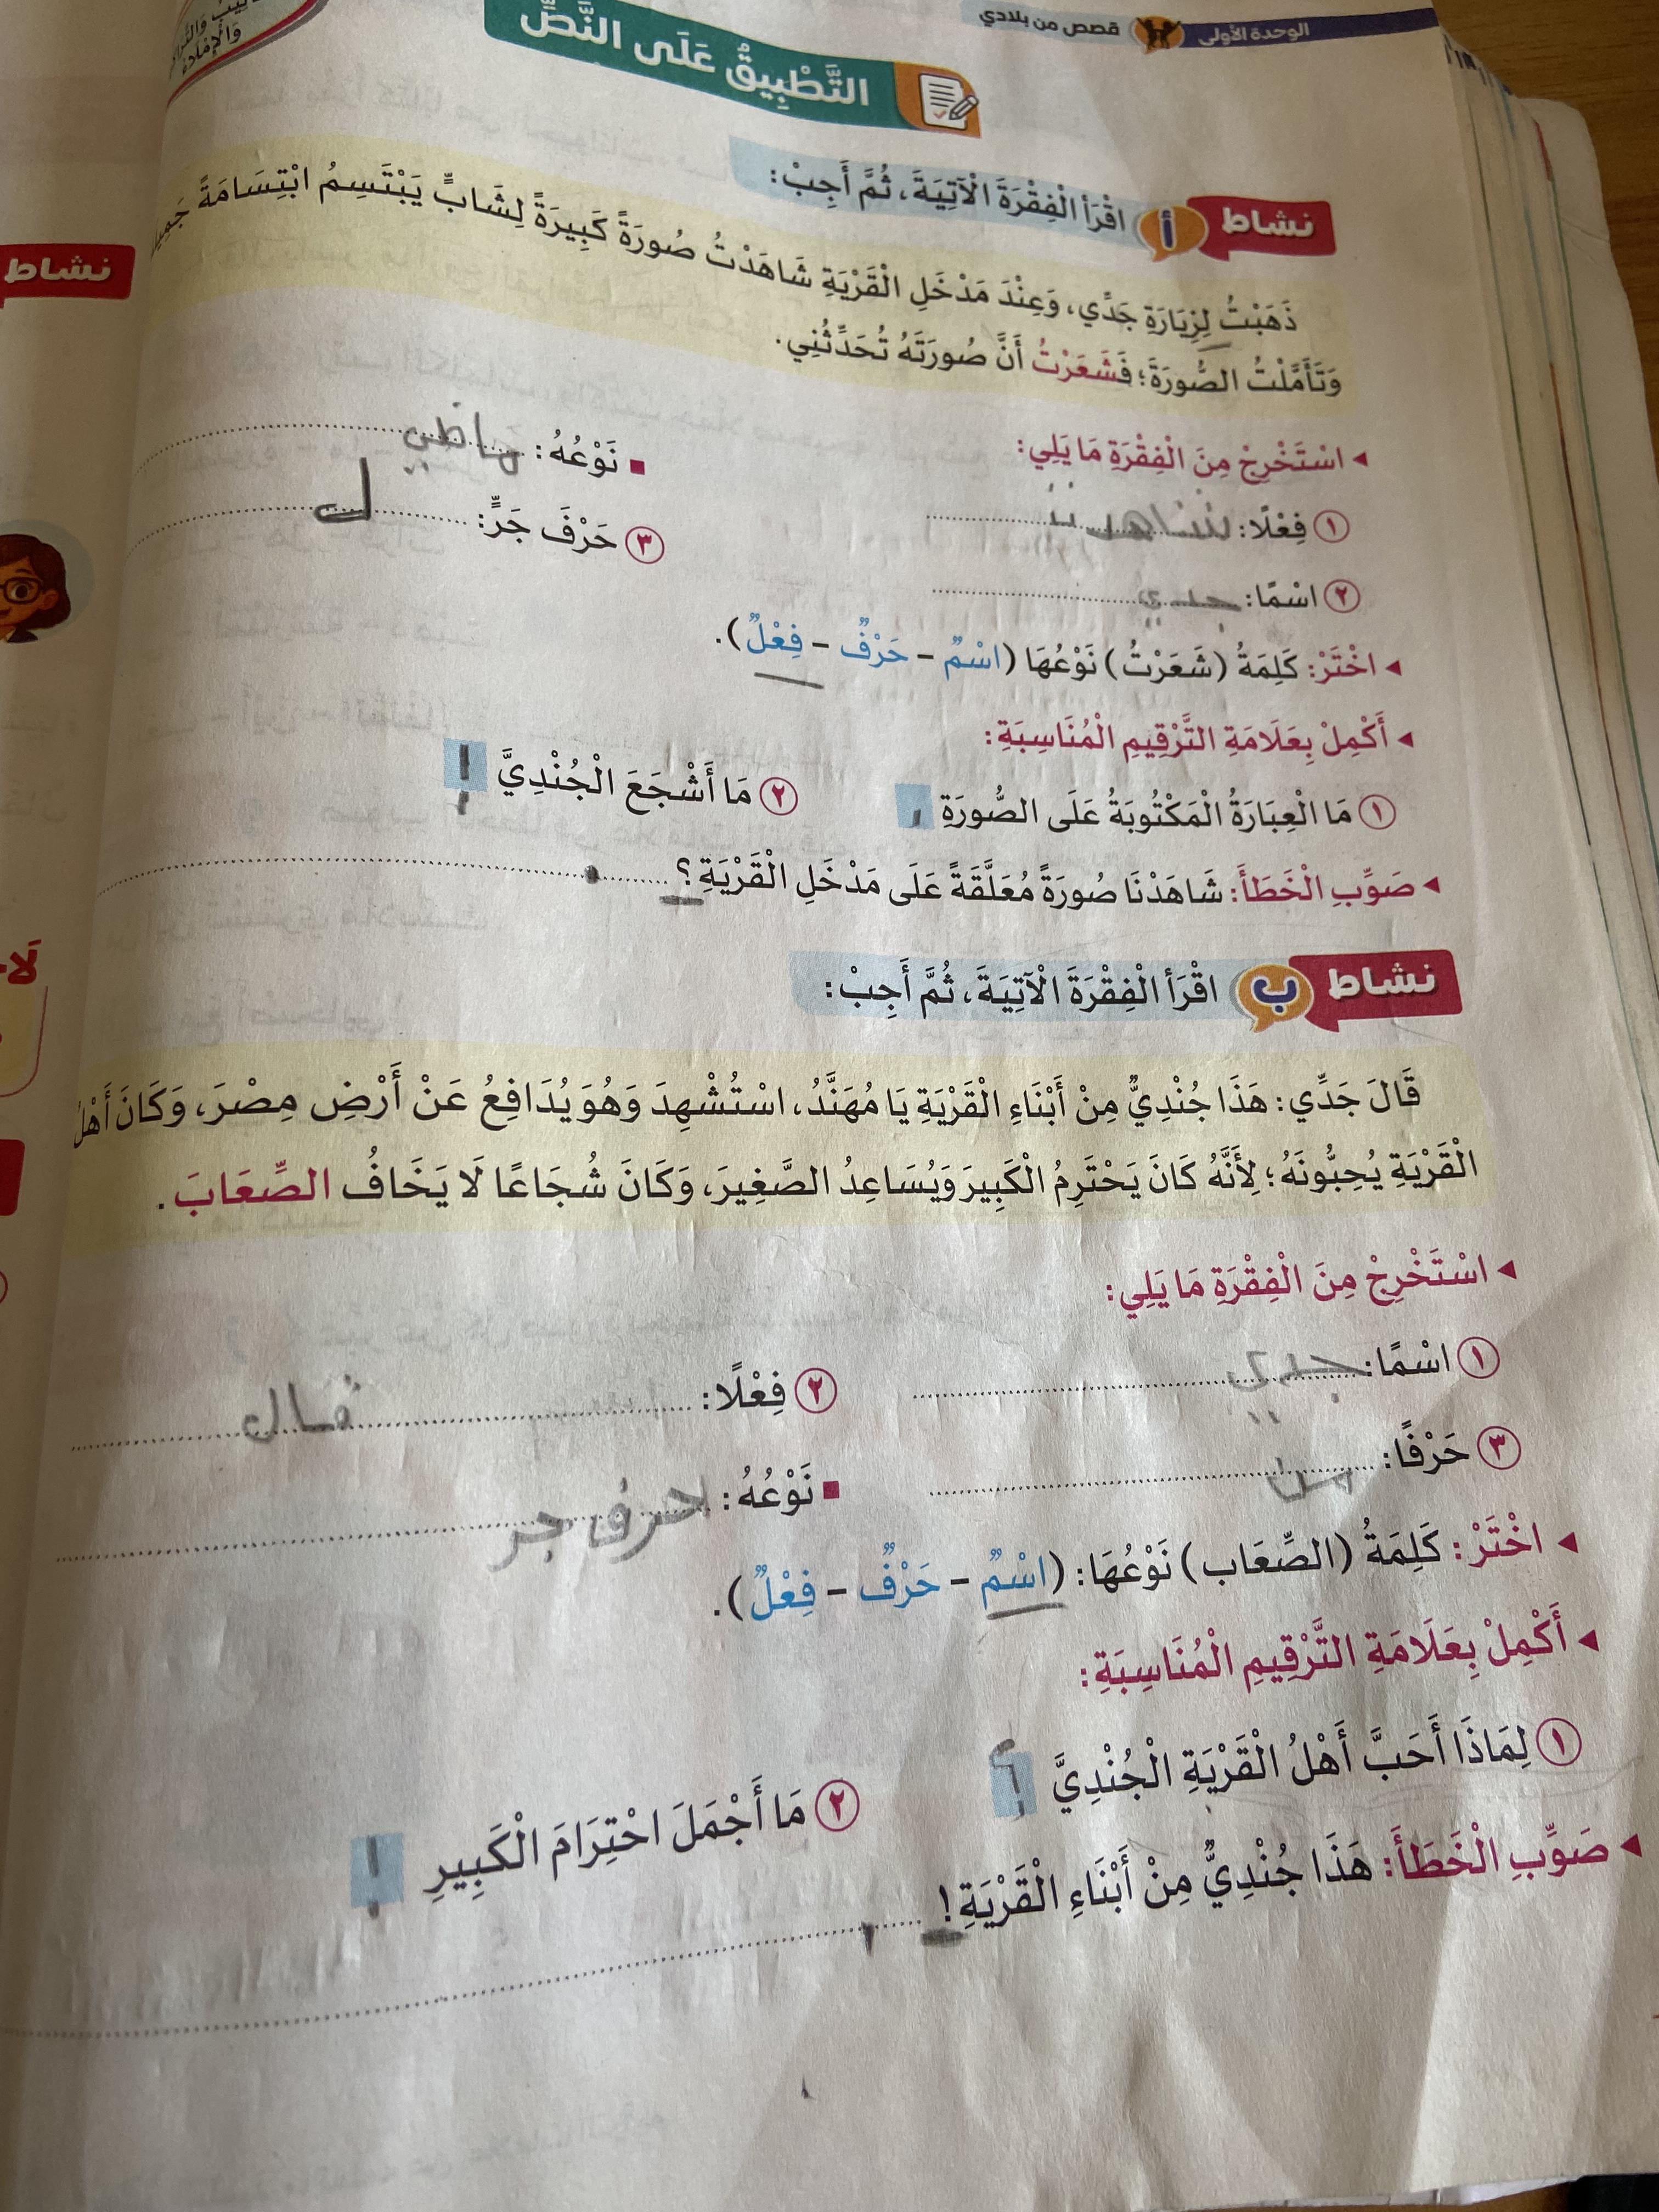 الوحدة الأولى قصص من بلادي
وَالْإِمْلَاءُ
التَّطْبِيقُ عَلَى النَّصِّ
نشاط أ اقْرَأِ الْفِقْرَةَ الْآتِيَةَ، ثُمَّ أَجِبْ:
ذَهَبْتُ لِزِيَارَةِ جَدِّي، وَعِنْدَ مَدْخَلِ الْقَرْيَةِ شَاهَدْتُ صُورَةً كَبِيرَةً لِشَابٍّ يَبْتَسِمُ ابْتِسَامَةً
وَتَأَمَّلْتُ الصُّورَةَ؛ فَشَعَرْتُ أَنَّ صُورَتَهُ تُحَدِّثُنِي.
◂ اسْتَخْرِجْ مِنَ الْفِقْرَةِ مَا يَلِي:
١ فِعْلًا: ■ نَوْعُهُ: ماضي
٢ اسْمًا: جدي ٣ حَرْفَ جَرٍّ: ل
◂ اخْتَرْ: كَلِمَةُ (شَعَرْتُ) نَوْعُهَا (اسْمٌ - حَرْفٌ - فِعْلٌ).
◂ أَكْمِلْ بِعَلَامَةِ التَّرْقِيمِ الْمُنَاسِبَةِ:
١ مَا الْعِبَارَةُ الْمَكْتُوبَةُ عَلَى الصُّورَةِ ، ٢ مَا أَشْجَعَ الْجُنْدِيَّ !
◂ صَوِّبِ الْخَطَأَ: شَاهَدْنَا صُورَةً مُعَلَّقَةً عَلَى مَدْخَلِ الْقَرْيَةِ؟ .
نشاط ب اقْرَأِ الْفِقْرَةَ الْآتِيَةَ، ثُمَّ أَجِبْ:
قَالَ جَدِّي: هَذَا جُنْدِيٌّ مِنْ أَبْنَاءِ الْقَرْيَةِ يَا مُهَنَّدُ، اسْتُشْهِدَ وَهُوَ يُدَافِعُ عَنْ أَرْضِ مِصْرَ، وَكَانَ أَهْلُ
الْقَرْيَةِ يُحِبُّونَهُ؛ لِأَنَّهُ كَانَ يَحْتَرِمُ الْكَبِيرَ وَيُسَاعِدُ الصَّغِيرَ، وَكَانَ شُجَاعًا لَا يَخَافُ الصِّعَابَ.
◂ اسْتَخْرِجْ مِنَ الْفِقْرَةِ مَا يَلِي:
١ اسْمًا: جدي ٢ فِعْلًا: قال
٣ حَرْفًا: من ■ نَوْعُهُ: حرف جر
◂ اخْتَرْ: كَلِمَةُ (الصِّعَاب) نَوْعُهَا: (اسْمٌ - حَرْفٌ - فِعْلٌ).
◂ أَكْمِلْ بِعَلَامَةِ التَّرْقِيمِ الْمُنَاسِبَةِ:
١ لِمَاذَا أَحَبَّ أَهْلُ الْقَرْيَةِ الْجُنْدِيَّ ؟ ٢ مَا أَجْمَلَ احْتِرَامَ الْكَبِيرِ !
◂ صَوِّبِ الْخَطَأَ: هَذَا جُنْدِيٌّ مِنْ أَبْنَاءِ الْقَرْيَةِ! ،
نشاط